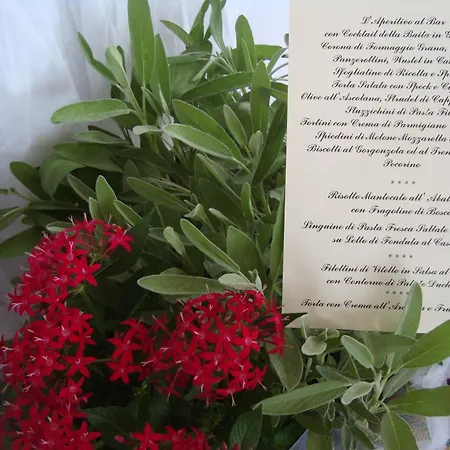 L'Aperitivo al Bar
con Cocktail della Baila in G
Corona di Formaggio Grana,
Panzerollini, Wustel in Ca
Sfogliatine di Ricotta e Sp
Torta Salata con Speck e C
Olive all'Ascolana, Strudel di Capp
Stuzzichini di Pasta Fil
Tortini con Crema di Parmigiano
Spiedini di Melone Mozzarella
Biscotti al Gorgonzola ed al Tren
Pecorino
****
Risotto Mantecato all' Abat
con Fragoline di Bosc
Linguine di Pasta Fresca Saltate
su Letto di Fonduta al Cas
****
Filettini di Vitello in Salsa al
con Contorno di Patate Duch
****
Torta con Crema all'Ar e Fru